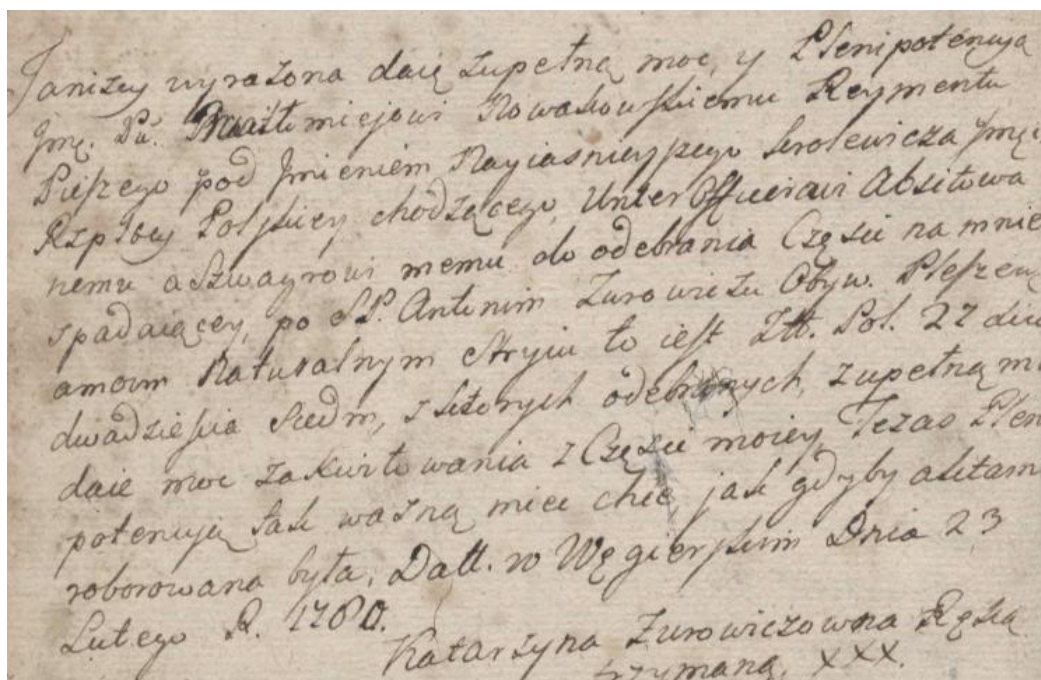 Ja niżey wyrażona daię zupełną moc, y Plenipotencyą
Jmę. Pu. Nowakowskiemu Reymentu
Pieszego pod Jmieniem Nayiasnieyszego krolewicza Jmęi
Rzpltey Polskiey chodzącego, Unter Officierowi Absitowa
nemu a Szwagrowi memu do odebrania Części na mnie
spadaiącey, po S.P. Antonim Zurowiczu Obyw. Pleszews
a moim Naturalnym Stryiu to iest Ztt. Pol. 27 dico
dwadziescia Siedm, z ktorych odebranych, zupełną mu
daie moc zakwitowania z Części moiey Tezas Pleni
potencyią tak ważną miec chcę jak gdyby aktami
roborowana była, Datt. w Węgierskim Dnia 23
Lutego R. 1780.
Katarzyna Zurowiczowna Ręką
trzymaną, XXX.